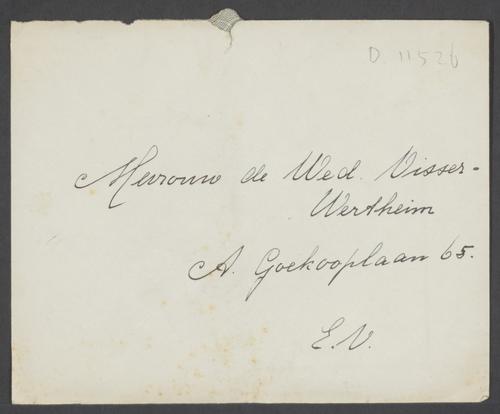 D. 11526
Mevrouw de Wed. Visser-
Wertheim
A. Goekooplaan 65.
E.V.